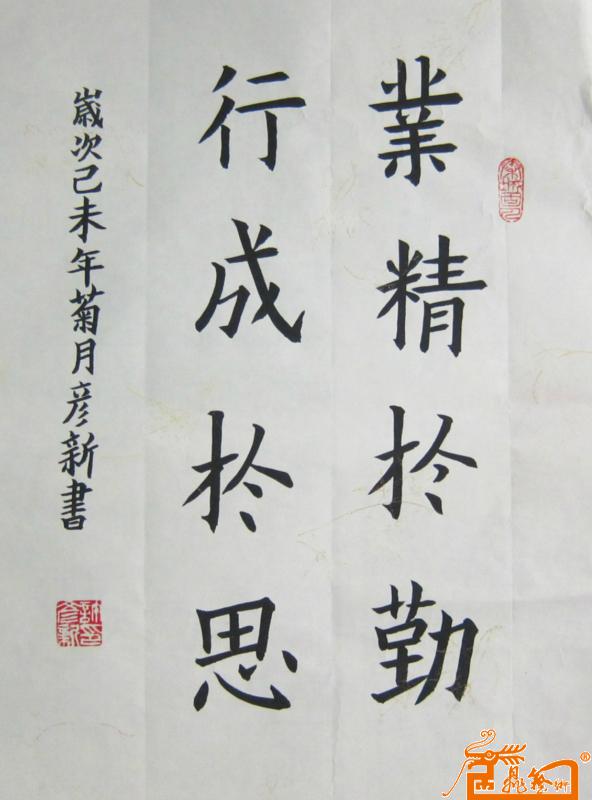 業精於勤
行成於思
歲次己未年菊月彦新書